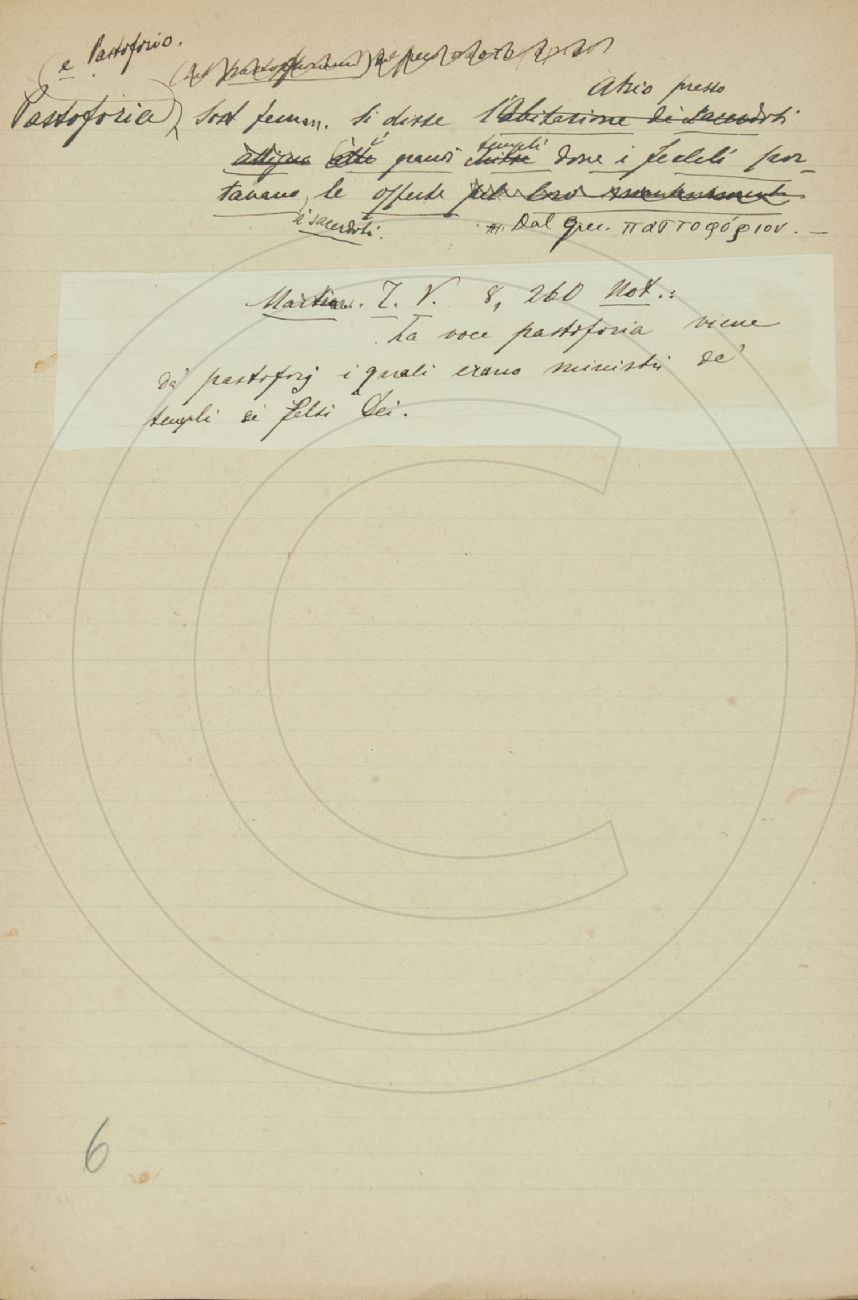 e Pastoforio.
Atrio presso
Pastoforia) Sost. femm. Si disse l'Abitazione de' Sacerdoti
templi
attigua alle grandi chiese dove i fedeli por-
tavano le offerte pel loro mantenimento
a' sacerdoti. Dal grec. παστοφόριον. —
Martin. T. V. 8, 260 Not.:
La voce pastoforia viene
da' pastoforj i quali erano ministri de'
templi de' falsi Dei.
6